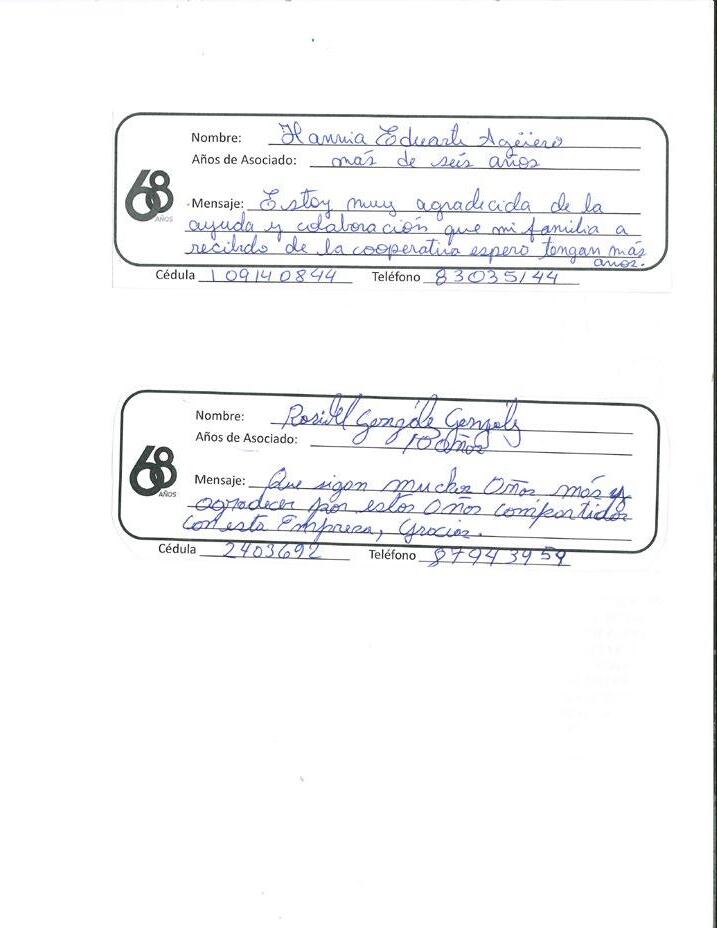 Nombre: Hannia Eduarte Agüero
Años de Asociado: más de seis años
68
AÑOS
Mensaje: Estoy muy agradecida de la
ayuda y colaboración que mi familia a
recibido de la cooperativa espero tengan más
años.
Cédula 109140844 Teléfono 83035144
Nombre: González
Años de Asociado: 10 años
68
AÑOS
Mensaje: Que sigan muchos años más y
agradecer por estos años compartidos
con esta Empresa, Gracias.
Cédula 2403692 Teléfono 87943959